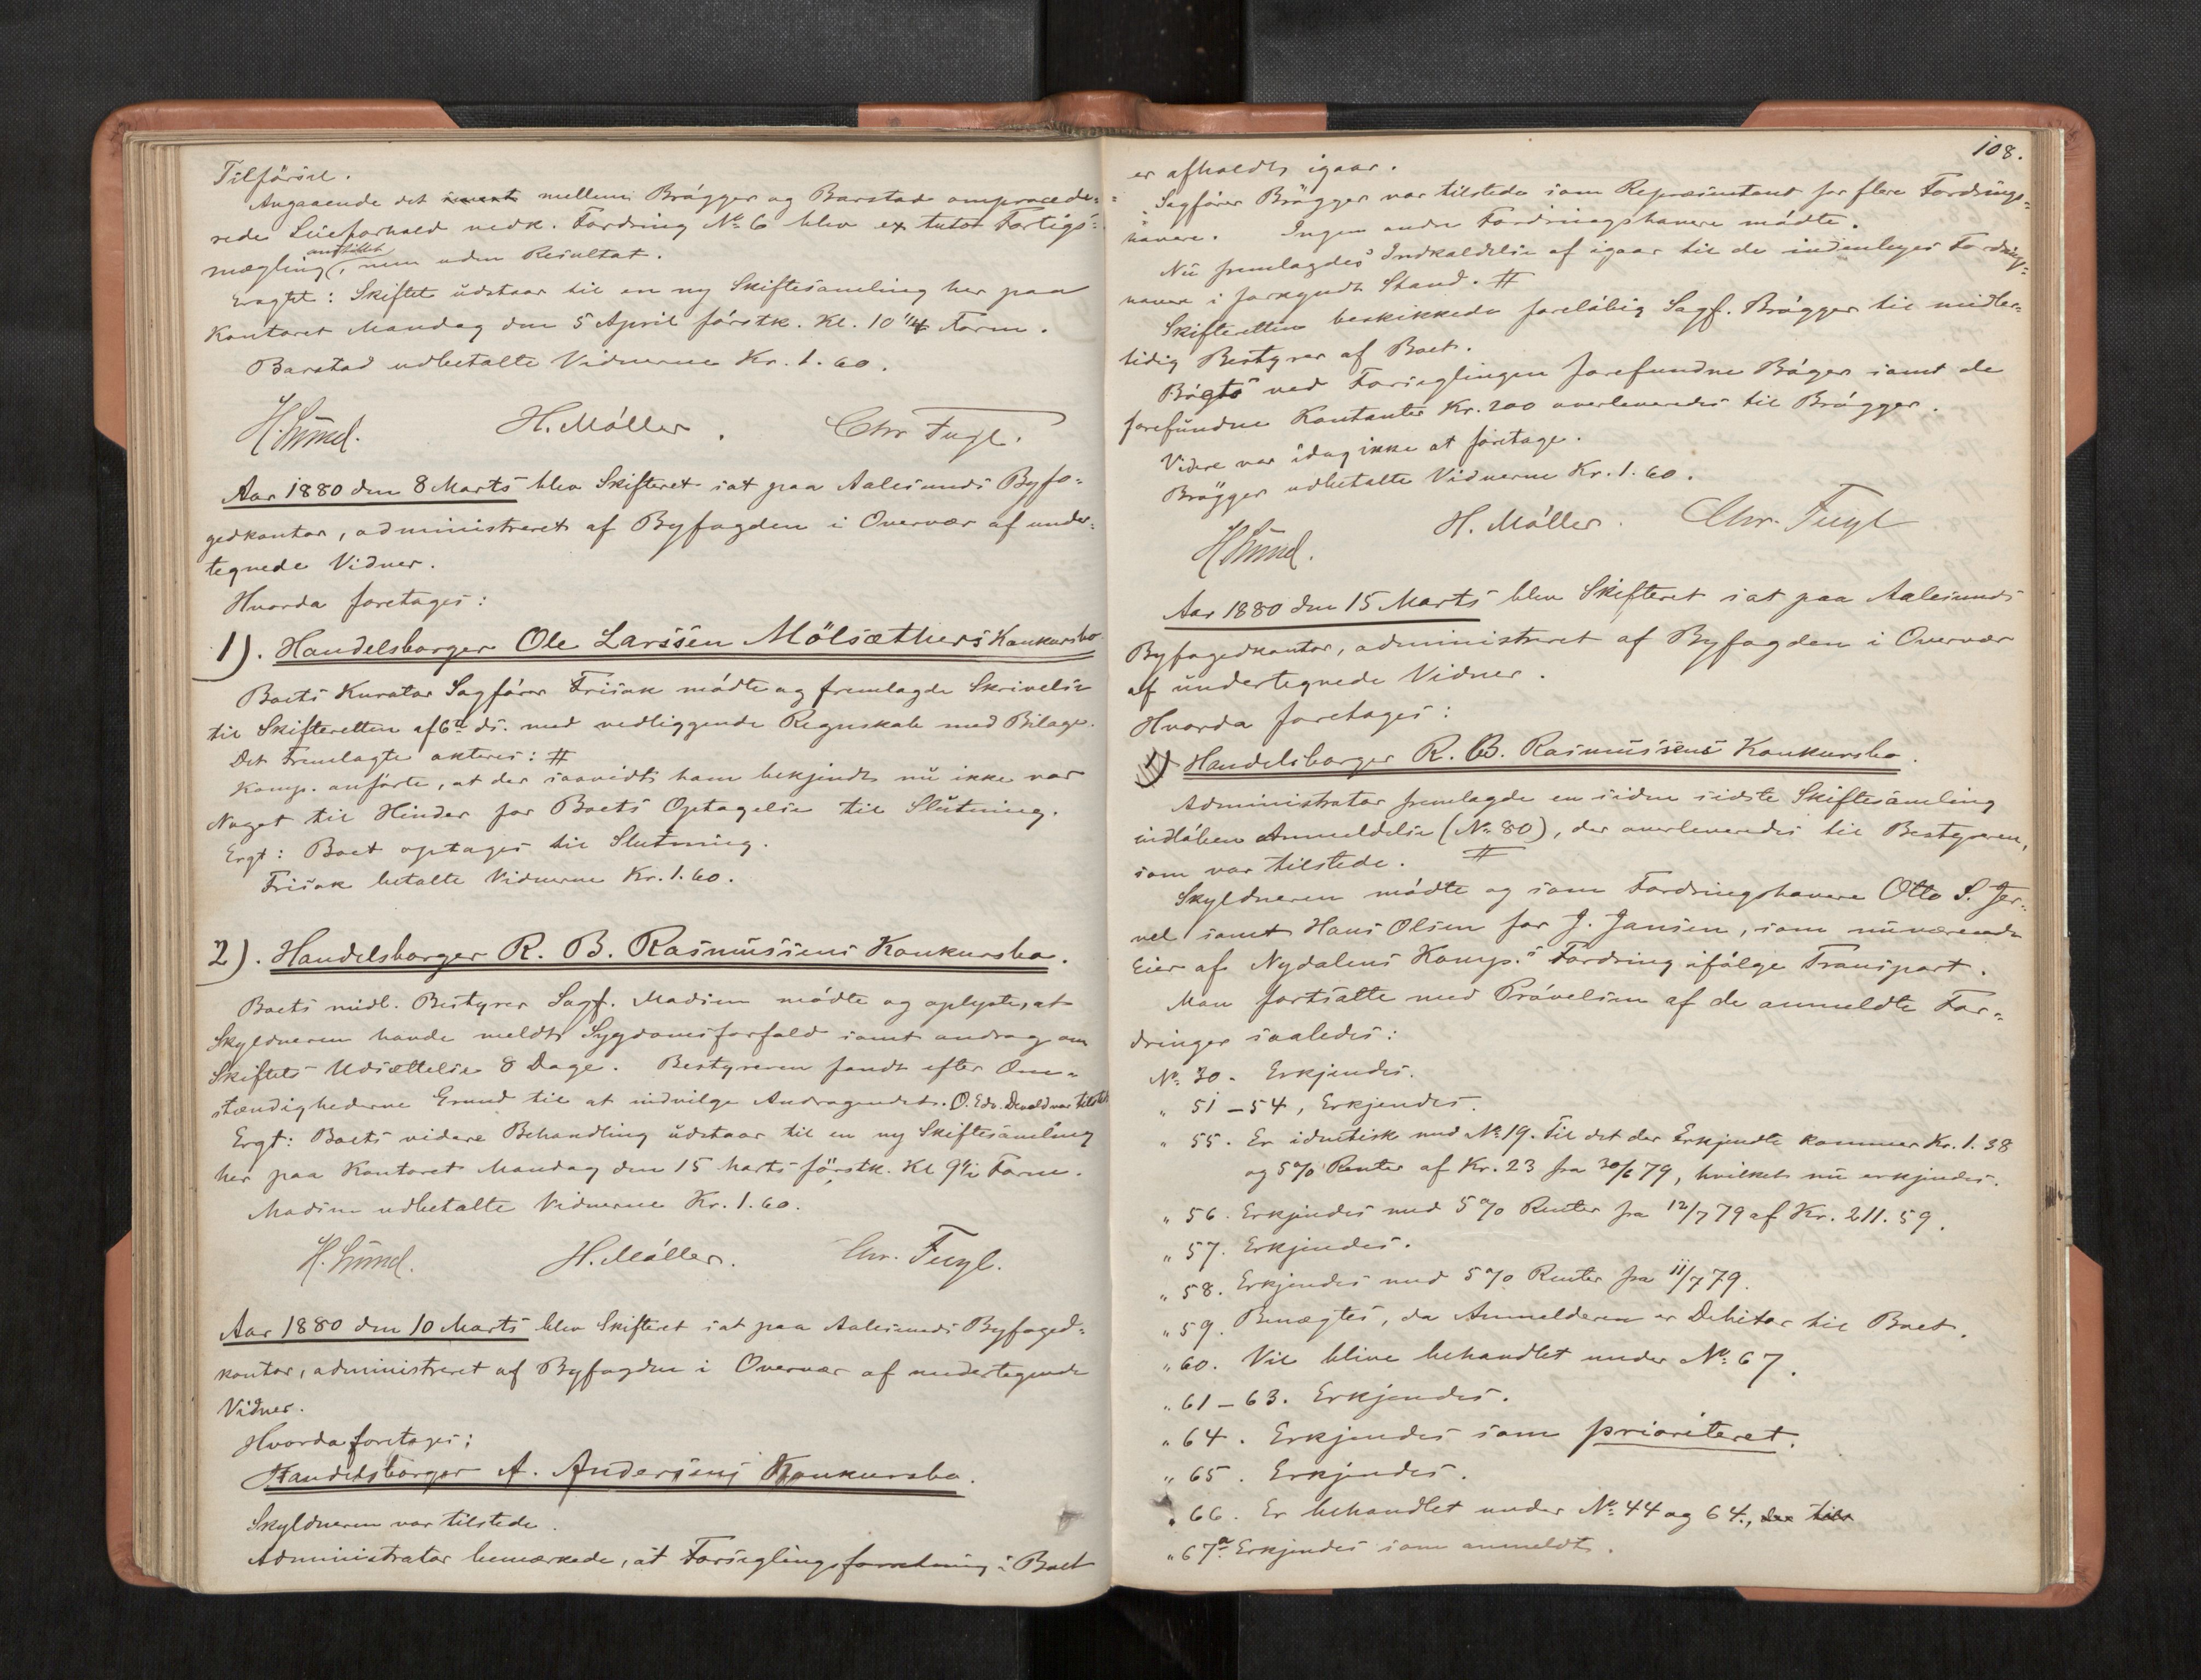 Tilførsel.
Angaaende det mellem Brøgger og Barstad ompræcede-
rede Leieforhold vedk. Fordring № 6 blev ex tutor Forligs-
mægling anstillet, men uden Resultat.
Eragtet: Skiftet udstaar til en ny Skiftesamling her paa
Kontoret Mandag den 5 April førstk. Kl. 10 1/4 Form.
Barstad udbetalte Vidnerne Kr. 1.60.
H. Lund. H. Møller. Chr Fugl.
Aar 1880 den 8 Marts blev Skifteret sat paa Aalesunds Byfo-
gedkontor, administreret af Byfogden i Overvær af under-
tegnede Vidner.
Hvorda foretages:
1). Handelsborger Ole Larssen Mölsæthers Konkursbo
Boets Kurator Sagfører Frisak mødte og fremlagde Skrivelse
til Skifteretten af 6te ds. med vedliggende Regnskab med Bilage.
Det Fremlagte akteres: #
Komp. anførte, at der saavidt ham bekjendt nu ikke var
Noget til Hinder for Boets Optagelse til Slutning.
Ergt: Boet optages til Slutning.
Frisak betalte Vidnerne Kr. 1.60.
2). Handelsborger R. B. Rasmussens Konkursbo.
Boets midl. Bestyrer Sagf. Madsen mødte og oplyste, at
Skyldneren havde meldt Sygdomsforfald samt androg om
Skiftets Udsættelse 8 Dage. Bestyreren fandt efter Om-
stændighederne Grund til at indvilge Andragendet. O. Edv. Devold var tilstede
Ergt: Boets videre Behandling udstaar til en ny Skiftesamling
her paa Kontoret Mandag den 15 Marts førstk. Kl 9 1/2 Form.
Madsen udbetalte Vidnerne Kr. 1.60.
H. Lund. H. Møller. Chr. Fugl.
Aar 1880 den 10 Marts blev Skifteret sat paa Aalesunds Byfoged-
kontor, administreret af Byfogden i Overvær af undertegnede
Vidner.
Hvorda foretages:
Handelsborger A. Andersens Konkursbo.
Skyldneren var tilstede.
Administrator bemærkede, at Forseglingsforretning i Boet
108.
er afholdt igaar.
Sagfører Brøgger var tilstede som Repræsentant for flere Fordrings-
havere. Ingen andre Fordringshavere mødte.
Nu fremlagdes Indkaldelse af igaar til de indenbyes Fordrings-
havere i forkyndt Stand. #
Skifteretten beskikkede foreløbig Sagf. Brøgger til midler-
tidig Bestyrer af Boet.
De ved Forseglingen forefundne Bøger samt de
forefundne Kontanter Kr. 200 overleveredes til Brøgger.
Videre var idag ikke at foretage.
Brøgger udbetalte Vidnerne Kr. 1.60.
H Lund. H. Møller. Chr. Fugl
Aar 1880 den 15 Marts blev Skifteret sat paa Aalesunds
Byfogedkontor, administreret af Byfogden i Overvær
af undertegnede Vidner.
Hvorda foretages:
1) Handelsborger R. B. Rasmussens Konkursbo.
Administrator fremlagde en siden sidste Skiftesamling
indløben Anmeldelse (№ 80), der overleveredes til Bestyreren,
som var tilstede. #
Skyldneren mødte og som Fordringshavere Otto S. Jer-
vel samt Hans Olsen for J. Jansen, som nuværende
Eier af Nydalens Komp.s Fordring ifølge Transport.
Man fortsatte med Prøvelsen af de anmeldte For-
dringer saaledes:
№ 30. Erkjendes.
" 51 – 54, Erkjendes.
" 55. Er identisk med № 19. Til det der Erkjendte kommer Kr. 1.38
og 5 % Renter af Kr. 23 fra 30/6 79, hvilket nu erkjendes.
" 56. Erkjendes med 5 % Renter fra 12/7 79 af Kr. 211.59.
" 57. Erkjendes.
" 58. Erkjendes med 5 % Renter fra 11/7 79.
" 59. Benægtes, da Anmelderen er Debitor til Boet.
" 60. Vil blive behandlet under № 67.
" 61 – 63. Erkjendes.
" 64. Erkjendes som prioriteret.
" 65. Erkjendes.
" 66. Er behandlet under № 44 og 64.,
" 67a. Erkjendes som anmeldt.